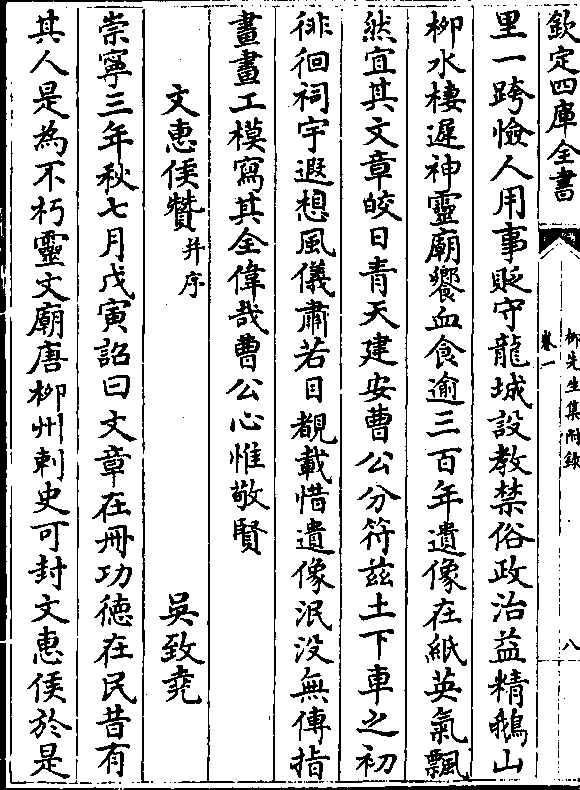 欽定四庫全書
柳先生集附錄
卷一
八
里一跨憸人用事貶守龍城設教禁俗政治益精鵝山
柳水棲遲神靈廟饗血食逾三百年遺像在紙英氣飄
然宜其文章皎日青天建安曹公分符兹土下車之初
徘徊祠宇遐想風儀肅若目覩載惜遺像泯没無傳指
畫畫工模寫其全偉哉曹公心惟敬賢
文惠侯贊并序
吳致堯
崇寧三年秋七月戊寅詔曰文章在冊功徳在民昔有
其人是為不朽靈文廟唐柳州刺史可封文惠侯於是